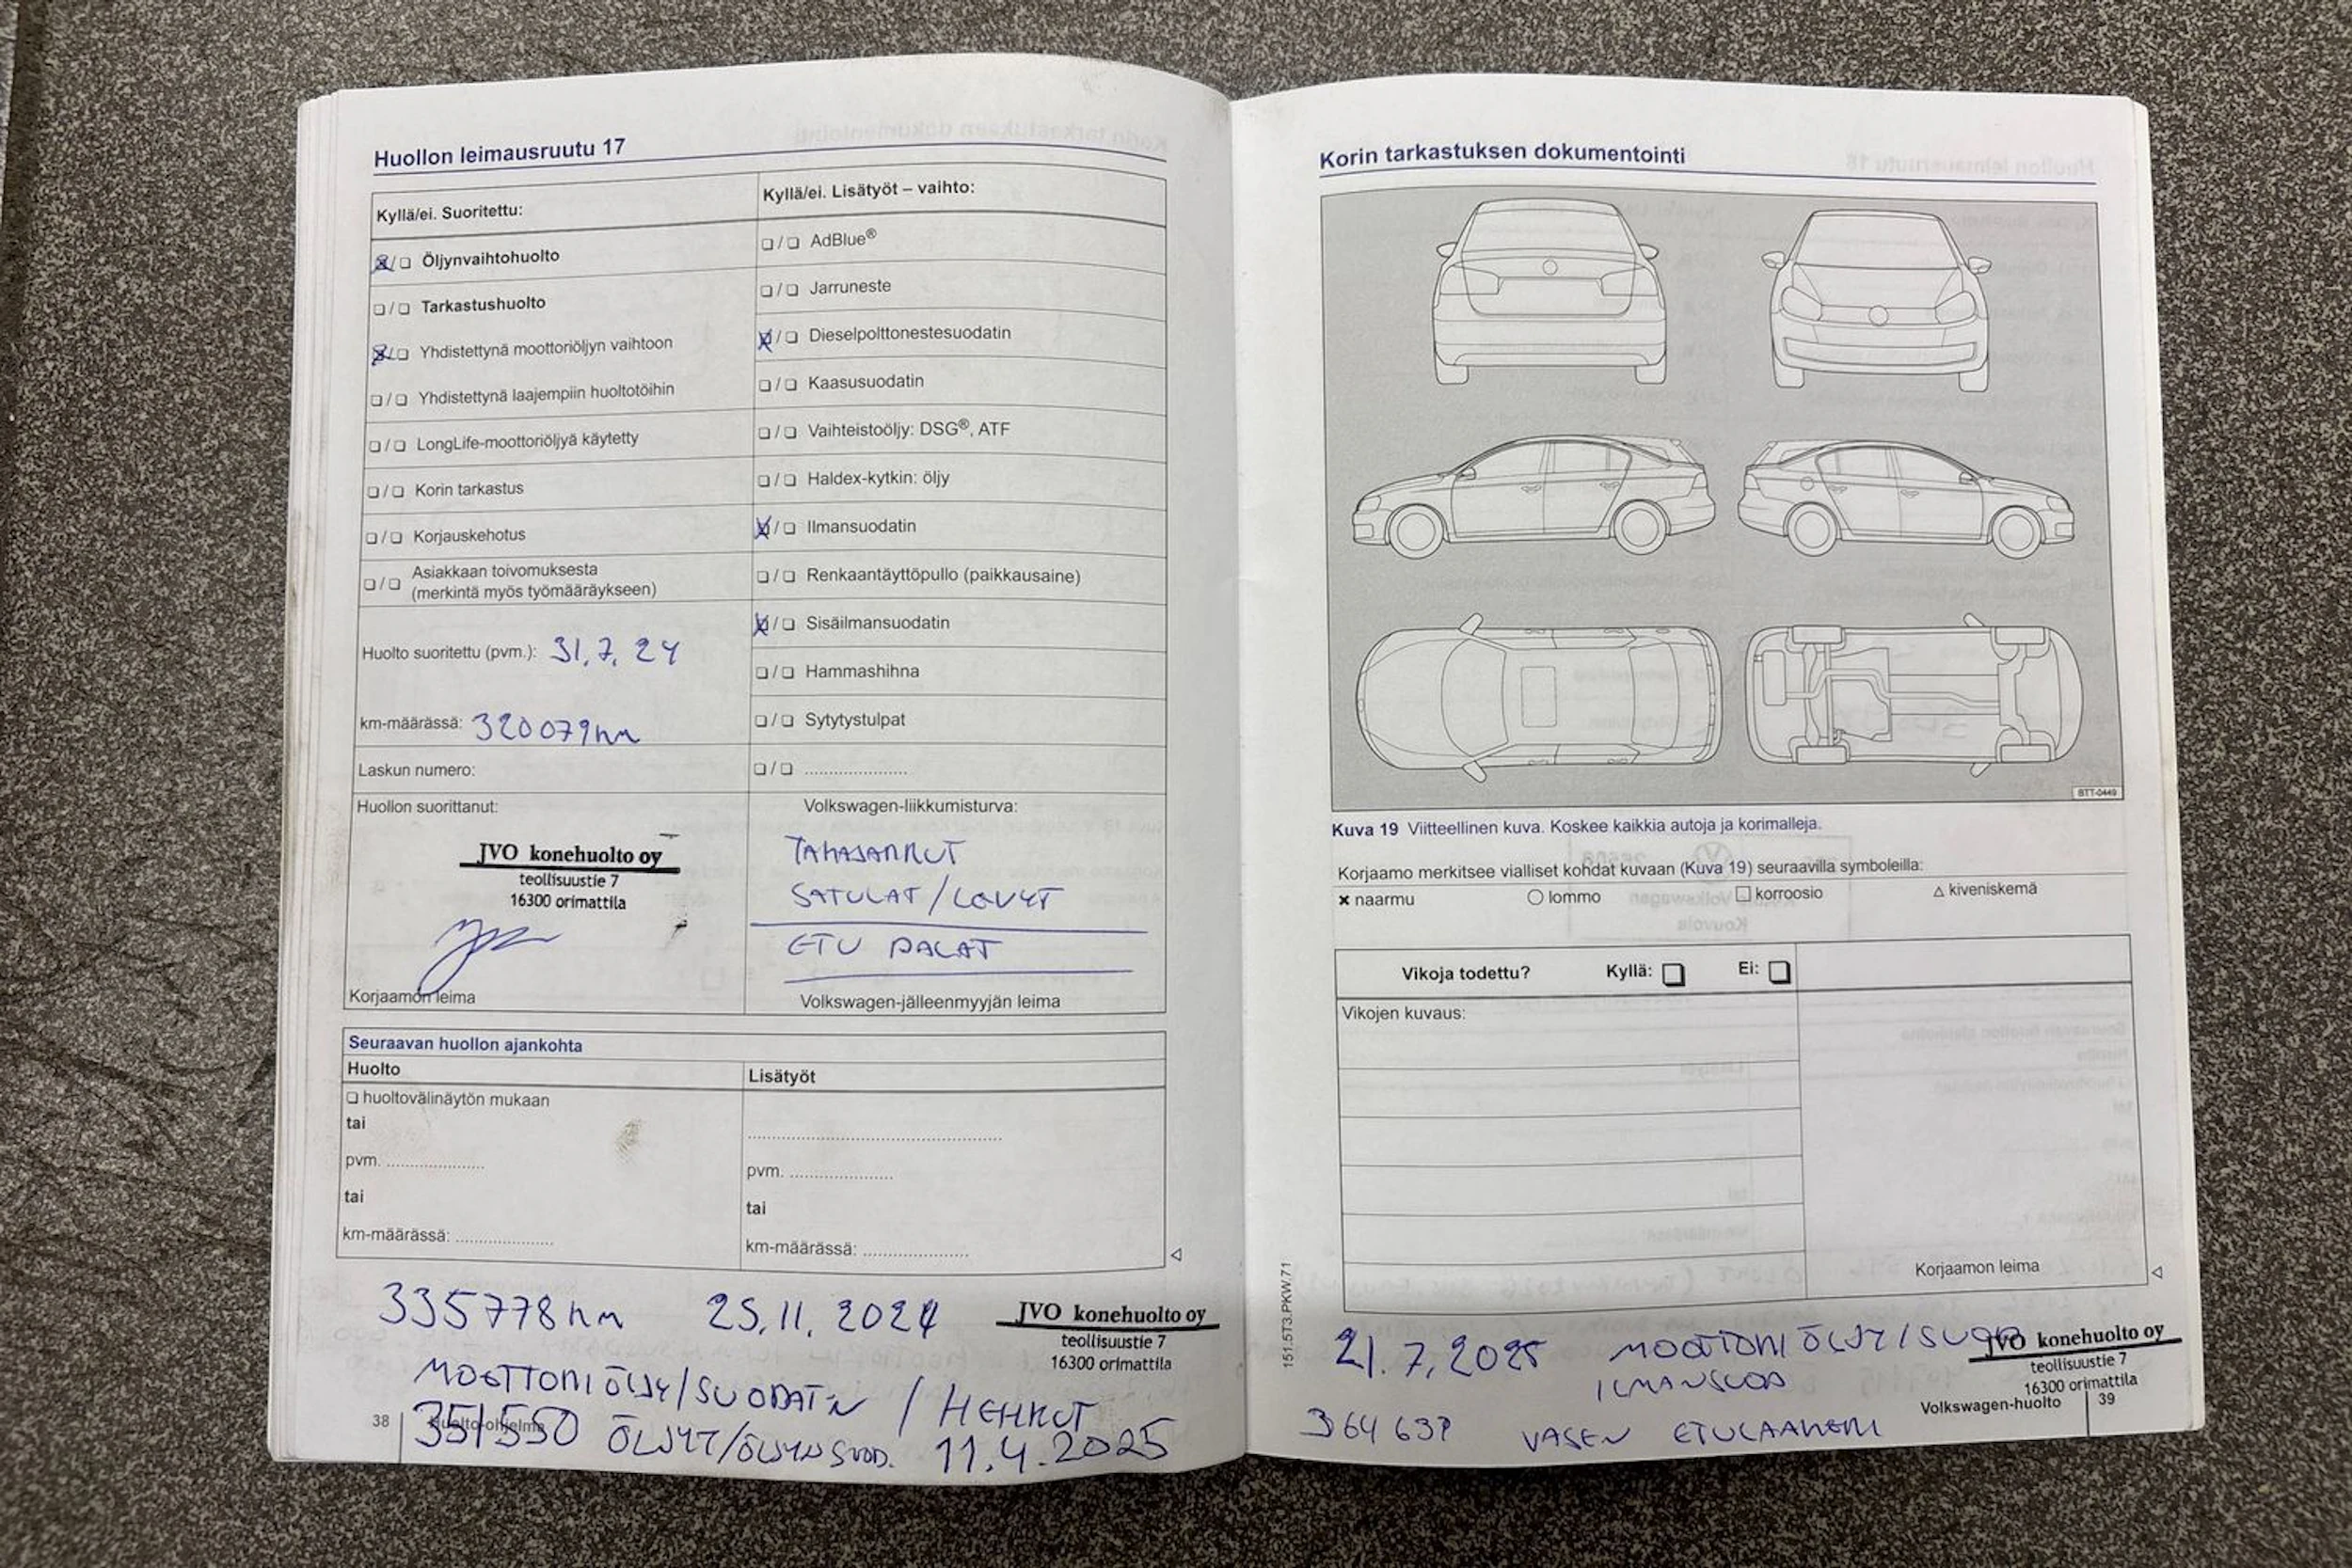 Huollon leimausruutu 17
Kyllä/ei. Suoritettu:
Öljynvaihtohuolto
Tarkastushuolto
Yhdistettynä moottoriöljyn vaihtoon
Yhdistettynä laajempiin huoltotöihin
LongLife-moottoriöljyä käytetty
Korin tarkastus
Korjauskehotus
Asiakkaan toivomuksesta
(merkintä myös työmääräykseen)
Huolto suoritettu (pvm.): 31.7.24
km-määrässä: 320079km
Laskun numero:
Huollon suorittanut:
JVO konehuolto oy
teollisuustie 7
16300 orimattila
Korjaamon leima
Kyllä/ei. Lisätyöt – vaihto:
AdBlue®
Jarruneste
Dieselpolttonestesuodatin
Kaasusuodatin
Vaihteistoöljy: DSG®, ATF
Haldex-kytkin: öljy
Ilmansuodatin
Renkaantäyttöpullo (paikkausaine)
Sisäilmansuodatin
Hammashihna
Sytytystulpat
Volkswagen-liikkumisturva:
TAKAJARRUT
SATULAT/LEVYT
ETU PALAT
Volkswagen-jälleenmyyjän leima
Seuraavan huollon ajankohta
Huolto
huoltovälinäytön mukaan
tai
pvm.
tai
km-määrässä:
Lisätyöt
pvm.
tai
km-määrässä:
335778km 25.11.2024
JVO konehuolto oy
teollisuustie 7
16300 orimattila
MOOTTORIÖLJY/SUODATIN / HEHKUT
38 Huolto-ohjelma
351550 ÖLJYT/ÖLJYNSUOD. 11.4.2025
Korin tarkastuksen dokumentointi
BTT-0449
Kuva 19 Viitteellinen kuva. Koskee kaikkia autoja ja korimalleja.
Korjaamo merkitsee vialliset kohdat kuvaan (Kuva 19) seuraavilla symboleilla:
naarmu lommo korroosio kiveniskemä
Vikoja todettu? Kyllä: Ei:
Vikojen kuvaus:
Korjaamon leima
151.5T3.PKW.71
21.7.2025 MOOTTORIÖLJY/SUOD
ILMANSUOD
JVO konehuolto oy
teollisuustie 7
16300 orimattila
VASEN ETULAAKERI
Volkswagen-huolto 39